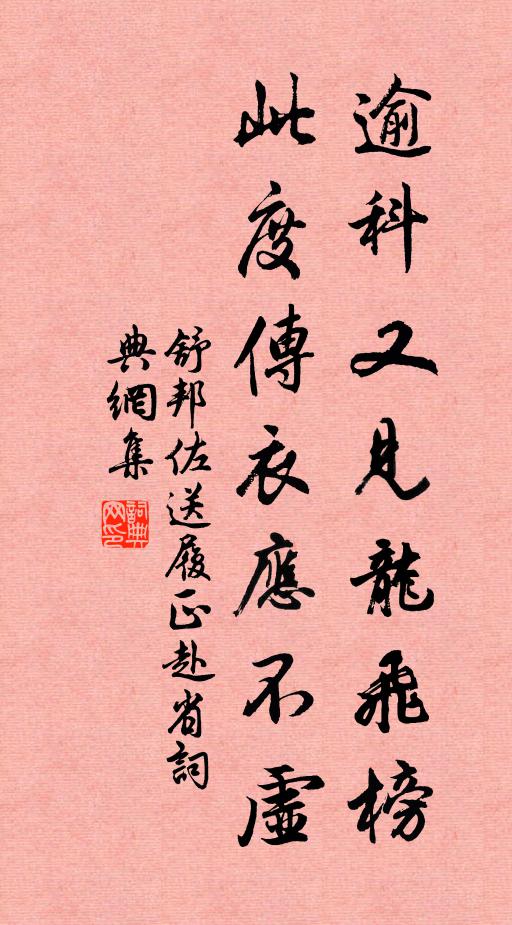 逾科又見龍飛榜
此度傳衣應不虛
舒邦佐送履正赴省詞
典網集
詞典網印